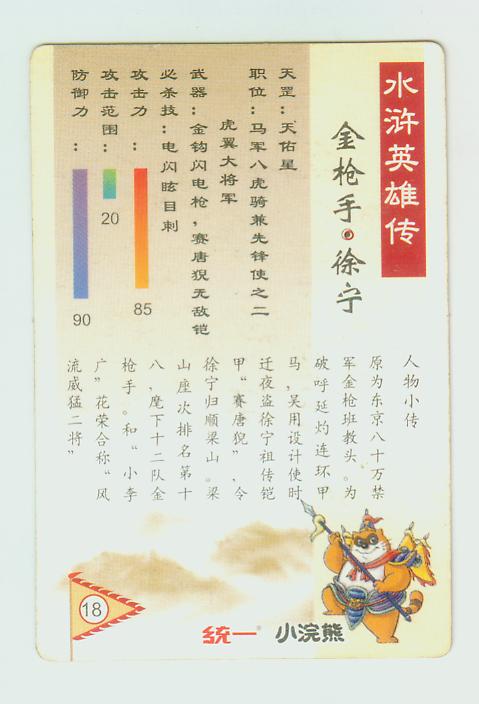 水浒英雄传
金枪手·徐宁
天罡：天佑星
职位：马军八虎骑兼先锋使之二
虎翼大将军
武器：金钩闪电枪，赛唐猊无敌铠
必杀技：电闪眩目刺
攻击力：
85
攻击范围：
20
防御力：
90
人物小传
原为东京八十万禁
军金枪班教头。为
破呼延灼连环甲
马，吴用设计使时
迁夜盗徐宁祖传铠
甲“赛唐猊”，令
徐宁归顺梁山。梁
山座次排名第十
八，麾下十二队金
枪手。和“小李
广”花荣合称“风
流威猛二将”
18
统一 小浣熊